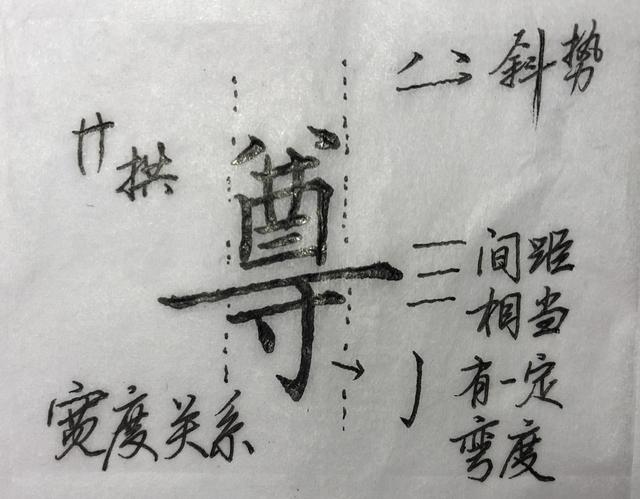 斜势
廾拱
尊
间距
相当
有一定
弯度
宽度关系